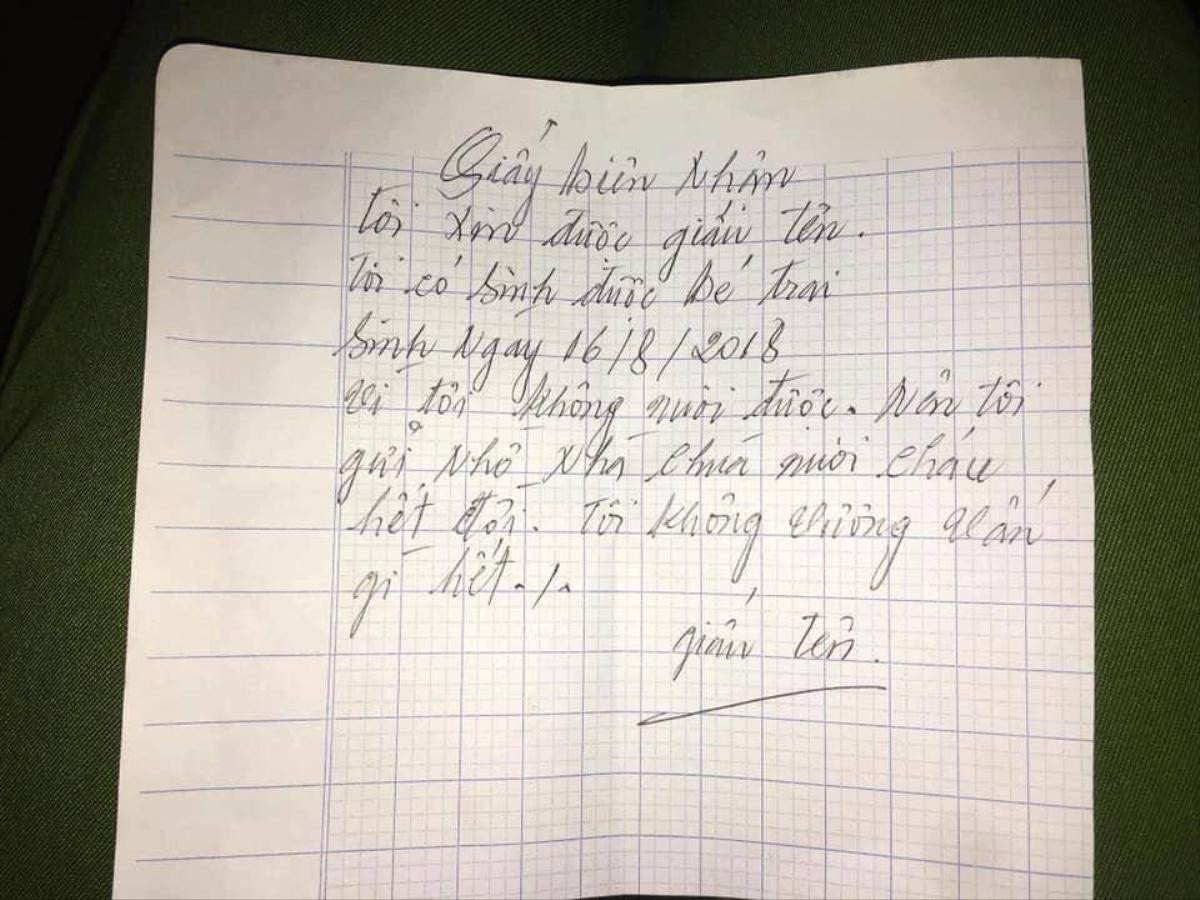 Giấy biên Nhận
Tôi xin được giấu tên.
Tôi có sinh được bé trai
sinh Ngày 16/8/2018
Vì tôi không nuôi được. Nên tôi
gửi Nhờ Nhà Chùa nuôi cháu
hết đời. Tôi không vướng vấn
gì hết./.
giấu tên.